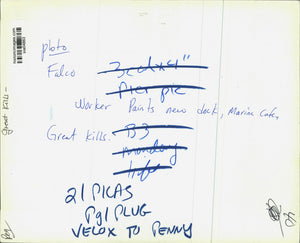 photo
Falco
Worker Paints new deck, Marina Cafe,
Great Kills.
B3
monday
21 PICAS
Pg1 PLUG
VELOX TO PENNY
Great Kills -